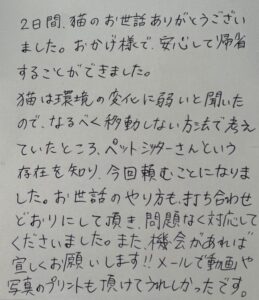 2日間、猫のお世話ありがとうござい
ました。おかげ様で、安心して帰省
することができました。
猫は環境の変化に弱いと聞いた
ので、なるべく移動しない方法で考え
ていたところ、ペットシッターさんという
存在を知り、今回頼むことになりま
した。お世話のやり方も、打ち合わせ
どおりにして頂き、問題なく対応して
くださいました。また、機会があれば
宜しくお願いします!!メールで動画や
写真のプリントも頂けてうれしかったです。